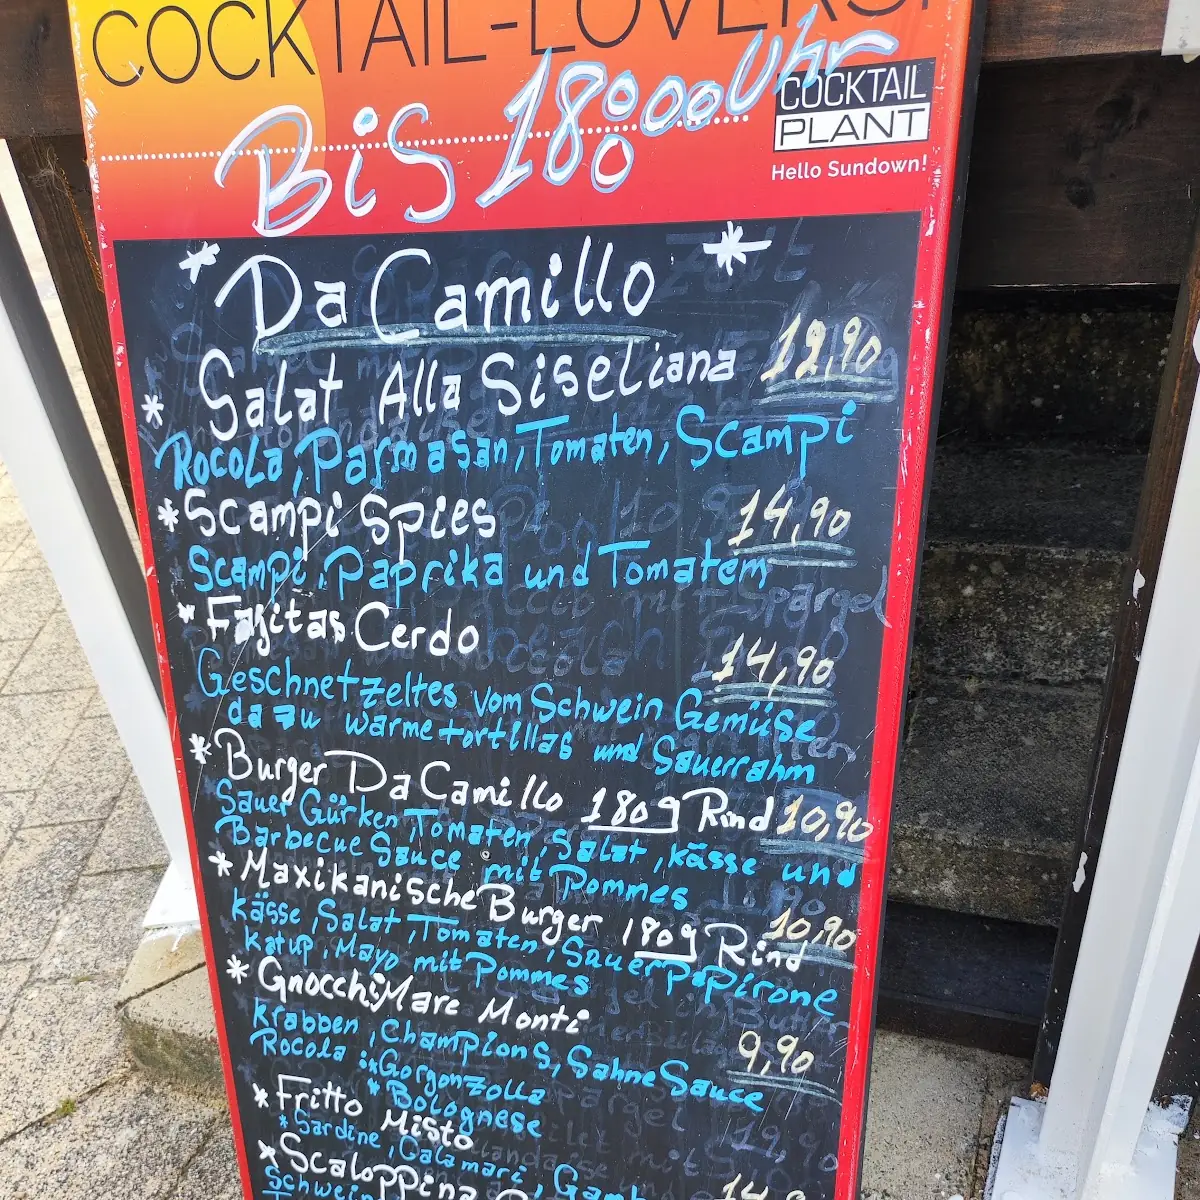 COCKTAIL-LOVERS!
Bis 18:00 Uhr
COCKTAIL
PLANT
Hello Sundown!
* Da Camillo *
* Salat Alla Siseliana 12,90
Rocola, Parmasan, Tomaten, Scampi
* Scampi Spies 14,90
Scampi, Paprika und Tomatem
* Fajitas Cerdo 14,90
Geschnetzeltes vom Schwein Gemüse
dazu warme tortillas und Sauerrahm
* Burger Da Camillo 180g Rind 10,90
Sauer Gürken, Tomaten, Salat, kässe und
Barbecue Sauce mit Pommes
* Maxikanische Burger 180g Rind 10,90
kässe, Salat, Tomaten, Sauer Pepirone
Katup, Mayo mit Pommes
* Gnocchi Mare Monti 9,90
krabben, Champions, Sahne Sauce
Rocola * Gorgonzolla
* Bolognese
* Fritto Misto
* Sardine, Calamari,
* Scaloppina
Schwein